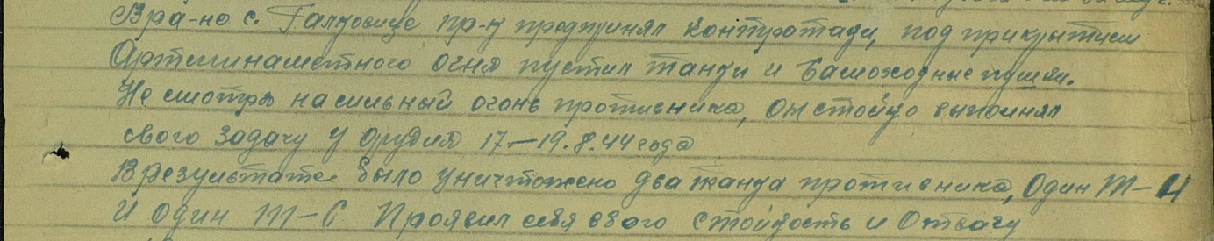 В ра-не с. Галковице пр-к предпринял контратаку, под прикрытием
Артминаметного огня пустил танки и самоходные пушки.
Не смотря на сильный огонь противника, он стойко выполнял
свою задачу у орудия 17-19.8.44 года
В результате было уничтожено два танка противника, один Т-4
и один Т-6 Проявил себя свою стойкость и Отвагу